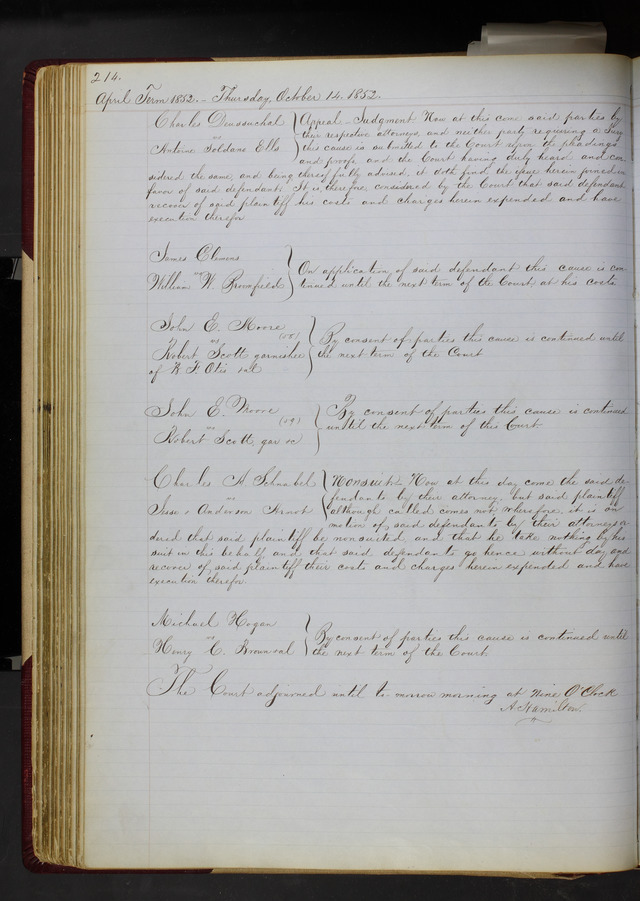 214.
April Term 1852. - Thursday, October 14. 1852.
Charles
vs
Antoine Soldane Ells
Appeal - Judgment Now at this come said parties by
their respective attorneys, and neither party requiring a Jury
this cause is submitted to the Court upon the pleadings
and proofs, and the Court having duly heard and con
sidered the same, and being thereof fully advised, it doth find the issue herein joined in
favor of said defendants. It is therefore considered by the Court that said defendant
recover of said plaintiff his costs and charges herein expended and have
execution therefor
James Clemens
vs
William W. Bromfield
On application of said defendant this cause is con
tinued until the next term of the Court at his costs
John E. Moore
(08)
vs
Robert Scott garnishee
of Otis
By consent of parties this cause is continued until
the next term of the Court
John E. Moore
(09)
vs
Robert Scott gar &c
By consent of parties this cause is continued
until the next term of this Court
Charles A. Schnabel
vs
Jesse & Anderson Arnot
Nonsuit - Now at this day come the said de-
fendants by their attorney, but said plaintiff
although called comes not wherefore, it is on
motion of said defendants by their attorneys or
dered that said plaintiff be nonsuited and that he take nothing by his
suit in this behalf and that said defendants go hence without day and
recover of said plaintiff their costs and charges herein expended and have
execution therefor.
Michael Hogan
vs
Henry C. Brown et al
By consent of parties this cause is continued until
the next term of the Court.
The Court adjourned until to-morrow morning at Nine O'Clock
A Hamilton.